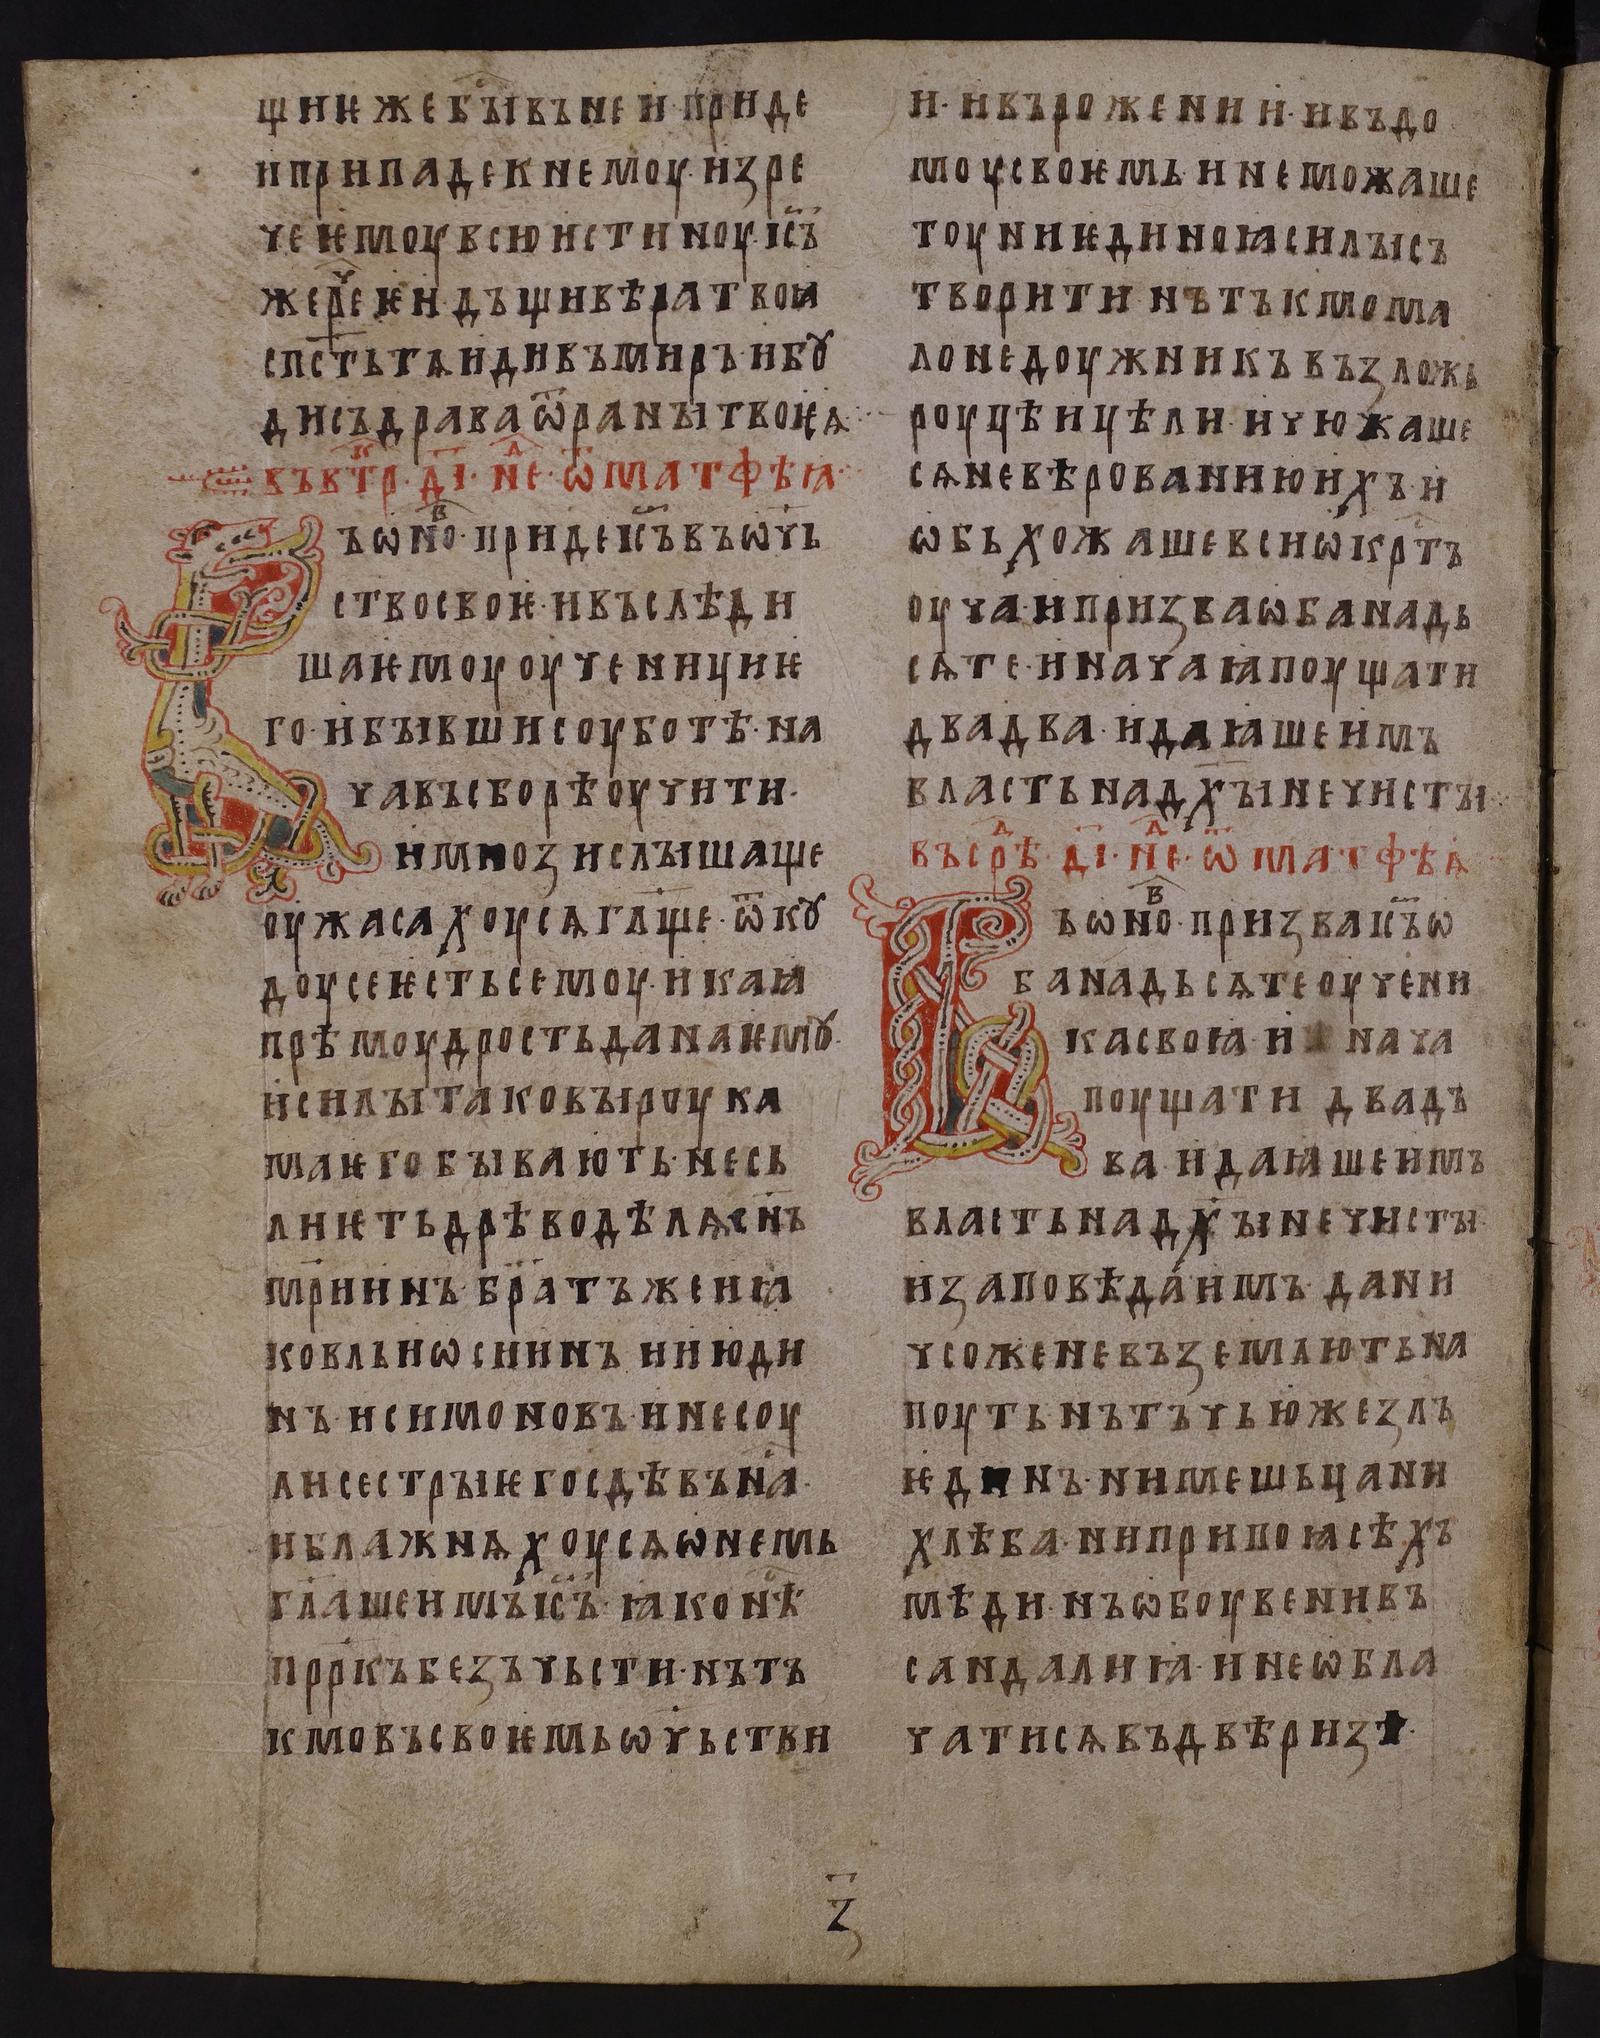 щиѥ же бывъ неи приде
и припаде к нѥмоу изре
че ѥмоу всю истиноу іс҃ъ
же рече ѥи дъщи вѣра твоꙗ
сп҃сть тѧ иди въ миръ и бꙋ
ди съдрава ѿ раны твоѥѧ
въ вт҃р д҃і н҃е ѿ матфѣꙗ
Въ ѡно приде іс҃ъ въ ѡ҃чь
ство своѥ и въ слѣди
ша ѥмоу оученици ѥ
го и бывши соуботѣ на
ча въ сборѣ оучити
и мнози слышаще
оужасахоу сѧ гл҃ще ѿкꙋ
доу се ѥсть семоу и каꙗ
прѣмоудрость дана ѥмꙋ
и силы таковы роука
ма ѥго бывають не сь
ли ѥть дрѣводѣлѧ сн҃ъ
мр҃иинъ братъ же иꙗ
ковль и ѡсиинъ и июди
нъ и симоновъ и не соу
ли сестры ѥго сдѣ въ на
и блажнѧхоу сѧ ѡ немь
гл҃аше имъ іс҃ъ ꙗко нѣ
пррк҃ъ безъ чьсти нъ тъ
кмо въ своѥмь ѡ҃чьстви
и и въ рожении и въ до
моу своѥмь и не можаше
тоу ни ѥдиноꙗ силы съ
творити нъ тъкмо ма
ло недоужникъ възложь
роуцѣ ицѣли и чюжаше
сѧ неверованию ихъ и
ѡбьхожаше вси ѡкр҃тъ
оуча и призва ѡба надь
сѧте и нача ꙗ поущати
два два и даꙗше имъ
власть над х҃ы нечисты
въ ср҃ѣ д҃і н҃е ѿ матфѣѧ
Въ ѡно призва іс҃ъ ѡ
ба надьсѧте оучени
ка своꙗ и нача
поущати двадъ
ва и даꙗше имъ
власть над х҃ы нечисты
и заповѣда имъ да ни
чсоже не въземлють на
поуть нъ тъчью жезлъ
ѥдинъ ни мешьца ни
хлѣба ни при поꙗсѣхъ
мѣди нъ ѡбоувени въ
сандалиꙗ и не ѡбла
чати сѧ въ двѣ ризѣ
з҃